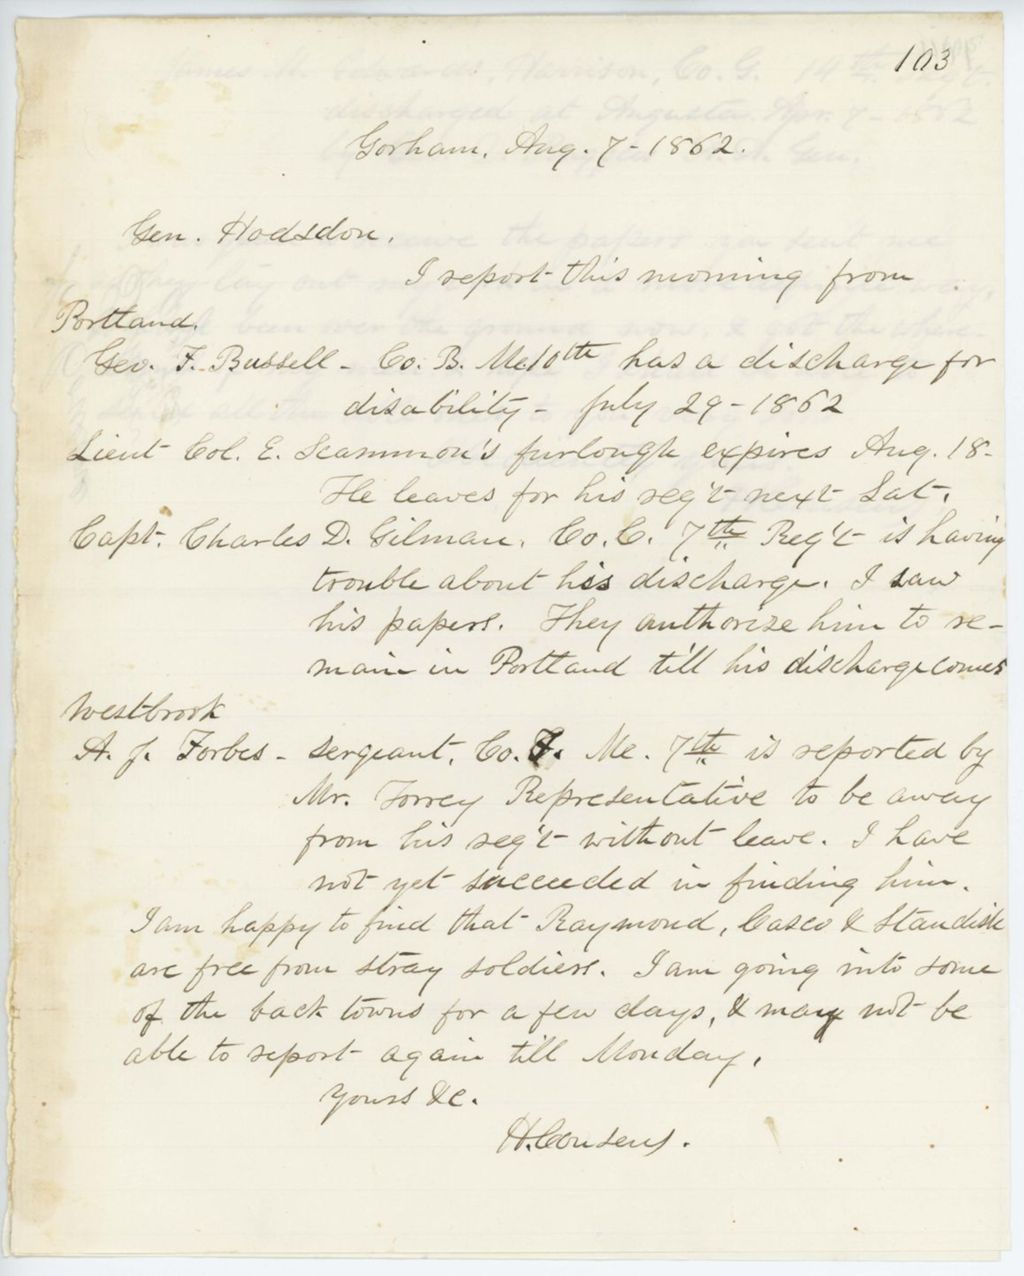 103
Gorham, Aug. 7 - 1862.
Gen. Hodsdon.
I report this morning from
Portland.
Geo. F. Bussell - Co. B. Me 10th has a discharge for
disability - July 29 - 1862
Lieut Col. E. Scammon's furlough expires Aug. 18.
He leaves for his reg't next Sat.
Capt. Charles D. Gilman. Co. C. 7th Reg't is having
trouble about his discharge. I saw
his papers. They authorize him to re-
main in Portland till his discharge comes
Westbrook
A. J. Forbes - sergeant, Co. F. Me. 7th is reported by
Mr. Torrey Representative to be away
from his reg't without leave. I have
not yet succeeded in finding him.
I am happy to find that Raymond, Casco & Standish
are free from stray soldiers. I am going into some
of the back towns for a few days, & may not be
able to report again till Monday.
Yours &c.
H. Cousens.